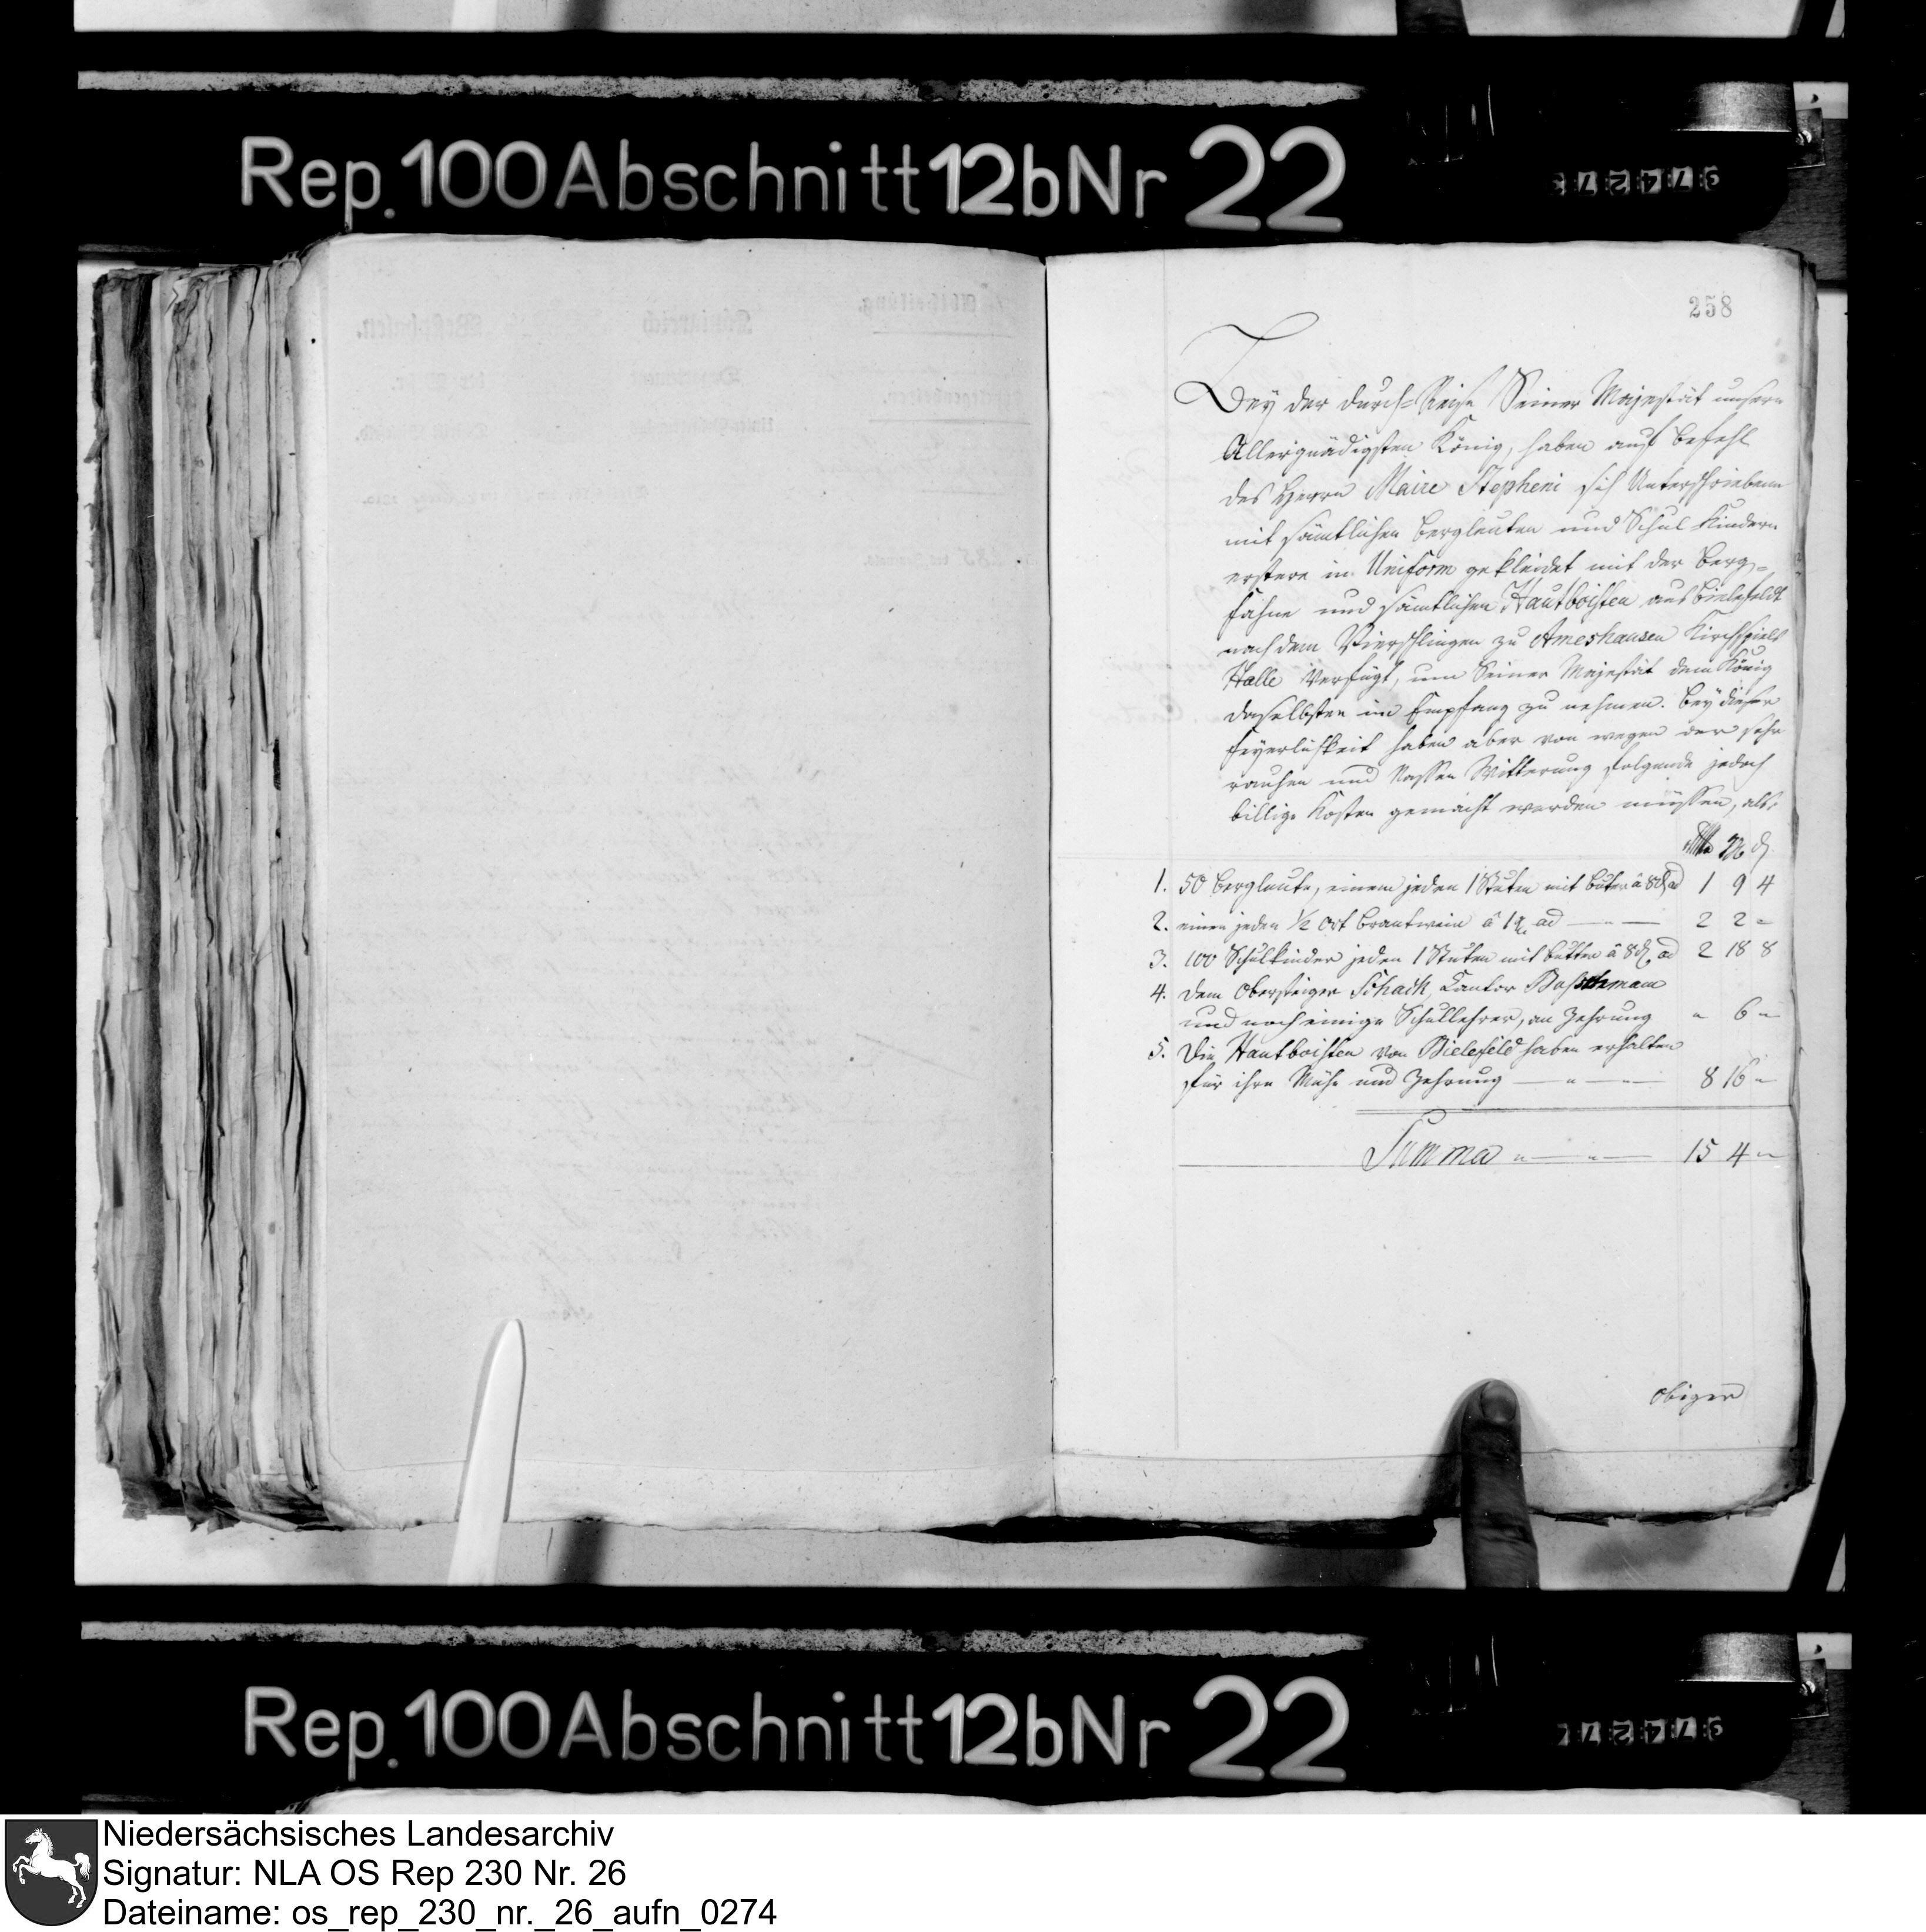 Rep.100Abschnitt12bNr 22
97427
258
Bey der durch-Reise Seiner Majestät unsern
Allergnädigsten König, haben auf Befehl
des Herrn Maire Stepheni sich Unterschriebene
mit sämtlichen Bergleuten und Schul Kindern
erstere in Uniform gekleidet mit der Berg-
fahne und sämtlichen Hautboisten aus Bielefeldt
nach dem Vierschlingen zu Ameshausen Kirchspiels
Halle verfügt, um Seiner Majestät dem König
daselbsten im Empfang zu nehmen. Bey dieser
feyerlichkeit haben aber von wegen der sehr
rauhen und Nassen Witterung folgende jedoch
billige Kosten gemacht werden müssen, als.
1. 50 Bergleute, einem jeden 1 Stuten mit Buter à 8 d ad 1 9 4
2. einen jeden 1/2 Ort Brantwein à 1 ad 2 2 -
3. 100 Schulkinder jeden 1 Stuten mit butter à 8 d ad 2 18 8
4. dem Obersteiger Schach, Cantor
und noch einige Schullehrer, an Zehrung " 6 -
5. Die Hautboisten von Bielefeld haben erhalten
für ihre Mühe und Zehrung 8 16 -
Summa 15 4 -
obiger
Rep.100Abschnitt12bNr 22
97427
Niedersächsisches Landesarchiv
Signatur: NLA OS Rep 230 Nr. 26
Dateiname: os_rep_230_nr._26_aufn_0274